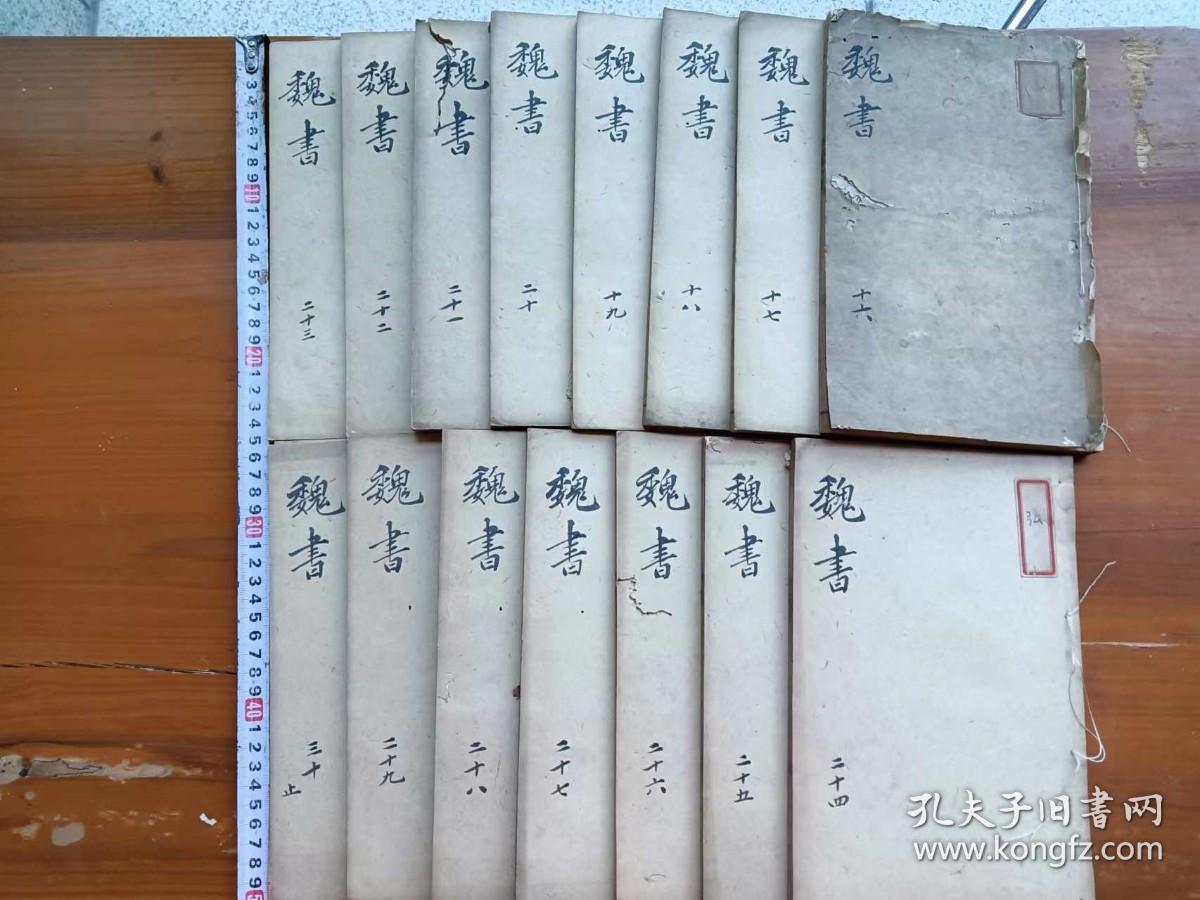 魏書
十六
魏書
十七
魏書
十八
魏書
十九
魏書
二十
魏書
二十一
魏書
二十二
魏書
二十三
魏書
二十四
弘
魏書
二十五
魏書
二十六
魏書
二十七
魏書
二十八
魏書
二十九
魏書
三十
止
3 4 5 6 7 8 9 10 1 2 3 4 5 6 7 8 9 20 1 2 3 4 5 6 7 8 9 30 1 2 3 4 5 6 7 8 9 40 1 2 3 4 5 6 7 8 9 5
孔夫子旧書网
www.kongfz.com